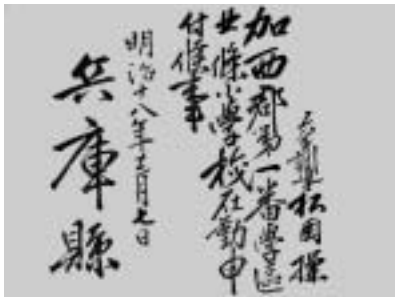 訓導松岡操
加西郡第一番學區
北條小學校在勤申
付候事
明治十八年月日
兵庫縣